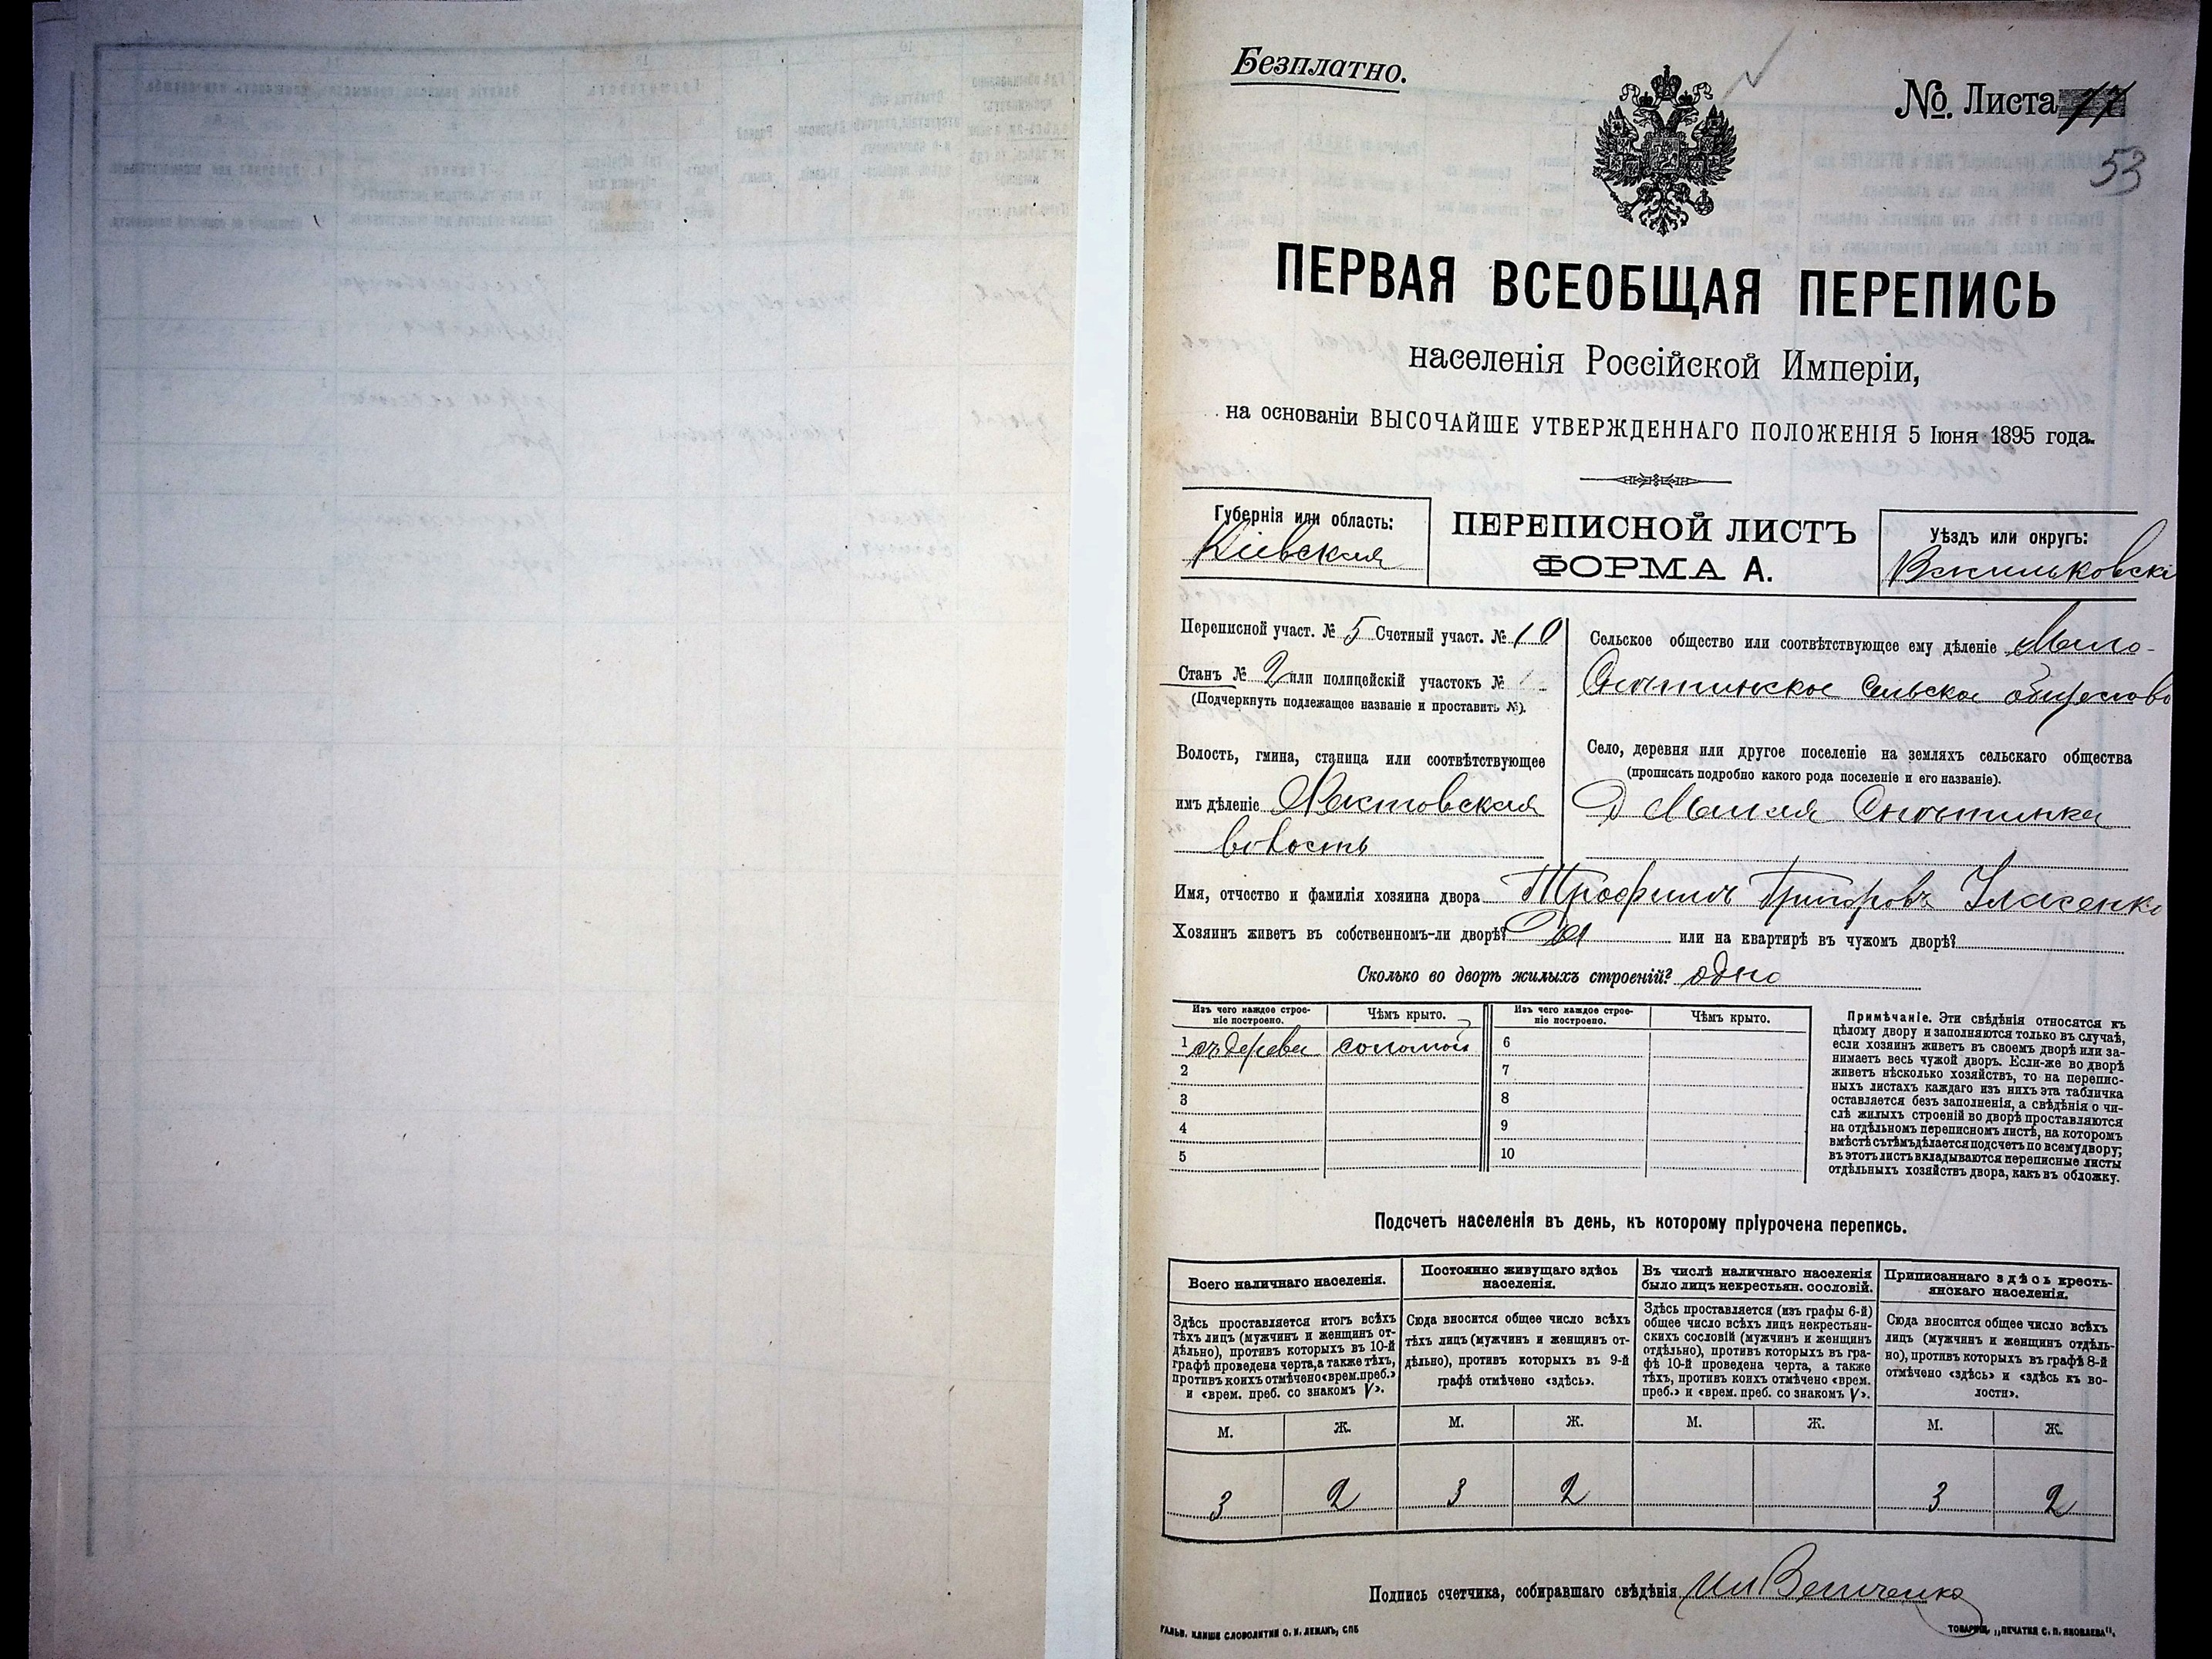 Безплатно.
№ Листа 77
53
ПЕРВАЯ ВСЕОБЩАЯ ПЕРЕПИСЬ
населенія Россійской Имперіи,
на основаніи ВЫСОЧАЙШЕ УТВЕРЖДЕННАГО ПОЛОЖЕНІЯ 5 Іюня 1895 года.
Губернія или область:
Кіевская
ПЕРЕПИСНОЙ ЛИСТЪ
ФОРМА А.
Уѣздъ или округъ:
Васильковскі
Переписной участ. № 5 Счетный участ. № 10
Станъ № 2 или полицейскій участокъ №
(Подчеркнуть подлежащее названіе и проставить №).
Волость, гмина, станица или соотвѣтствующее
имъ дѣленіе Фастовская
волость
Сельское общество или соотвѣтствующее ему дѣленіе Мало-
Снѣтинское сельское общество
Село, деревня или другое поселеніе на земляхъ сельскаго общества
(прописать подробно какого рода поселеніе и его названіе).
Д Малая Снѣтинка
Имя, отчество и фамилія хозяина двора Трофимъ Григоровъ Уласенко
Хозяинъ живетъ въ собственномъ-ли дворѣ? Да или на квартирѣ въ чужомъ дворѣ?
Сколько во дворѣ жилыхъ строеній? одно
Изъ чего каждое строе-
ніе построено.
Чѣмъ крыто.
Изъ чего каждое строе-
ніе построено.
Чѣмъ крыто.
1 съ дерева соломой 6
2 7
3 8
4 9
5 10
Примѣчаніе. Эти свѣдѣнія относятся къ
цѣлому двору и заполняются только въ случаѣ,
если хозяинъ живетъ въ своемъ дворѣ или за-
нимаетъ весь чужой дворъ. Если-же во дворѣ
живетъ нѣсколько хозяйствъ, то на перепис-
ныхъ листахъ каждаго изъ нихъ эта табличка
оставляется безъ заполненія, а свѣдѣнія о чи-
слѣ жилыхъ строеній во дворѣ проставляются
на отдѣльномъ переписномъ листѣ, на которомъ
вмѣстѣ съ тѣмъ дѣлается подсчетъ по всему двору;
въ этотъ листъ вкладываются переписные листы
отдѣльныхъ хозяйствъ двора, какъ въ обложку.
Подсчетъ населенія въ день, къ которому пріурочена перепись.
Всего наличнаго населенія.
Здѣсь проставляется итогъ всѣхъ
тѣхъ лицъ (мужчинъ и женщинъ от-
дѣльно), противъ которыхъ въ 10-й
графѣ проведена черта, а также тѣхъ,
противъ коихъ отмѣчено «врем. преб.»
и «врем. преб. со знакомъ V».
Постоянно живущаго здѣсь
населенія.
Сюда вносится общее число всѣхъ
тѣхъ лицъ (мужчинъ и женщинъ от-
дѣльно), противъ которыхъ въ 9-й
графѣ отмѣчено «здѣсь».
Въ числѣ наличнаго населенія
было лицъ некрестьян. сословій.
Здѣсь проставляется (изъ графы 6-й)
общее число всѣхъ лицъ некрестьян-
скихъ сословій (мужчинъ и женщинъ
отдѣльно), противъ которыхъ въ гра-
фѣ 10-й проведена черта, а также
тѣхъ, противъ коихъ отмѣчено «врем.
преб.» и «врем. преб. со знакомъ V».
Приписаннаго здѣсь кресть-
янскаго населенія.
Сюда вносится общее число всѣхъ
лицъ (мужчинъ и женщинъ отдѣль-
но), противъ которыхъ въ графѣ 8-й
отмѣчено «здѣсь» и «здѣсь къ во-
лости».
М. Ж. М. Ж. М. Ж. М. Ж.
3 2 3 2 3 2
Подпись счетчика, собиравшаго свѣдѣнія Величенко
ГАЛЬВ. КЛИШЕ СЛОВОЛИТНИ О. И. ЛЕМАНЪ, СПБ
ТОВАРИЩ. „ПЕЧАТНЯ С. П. ЯКОВЛЕВА".